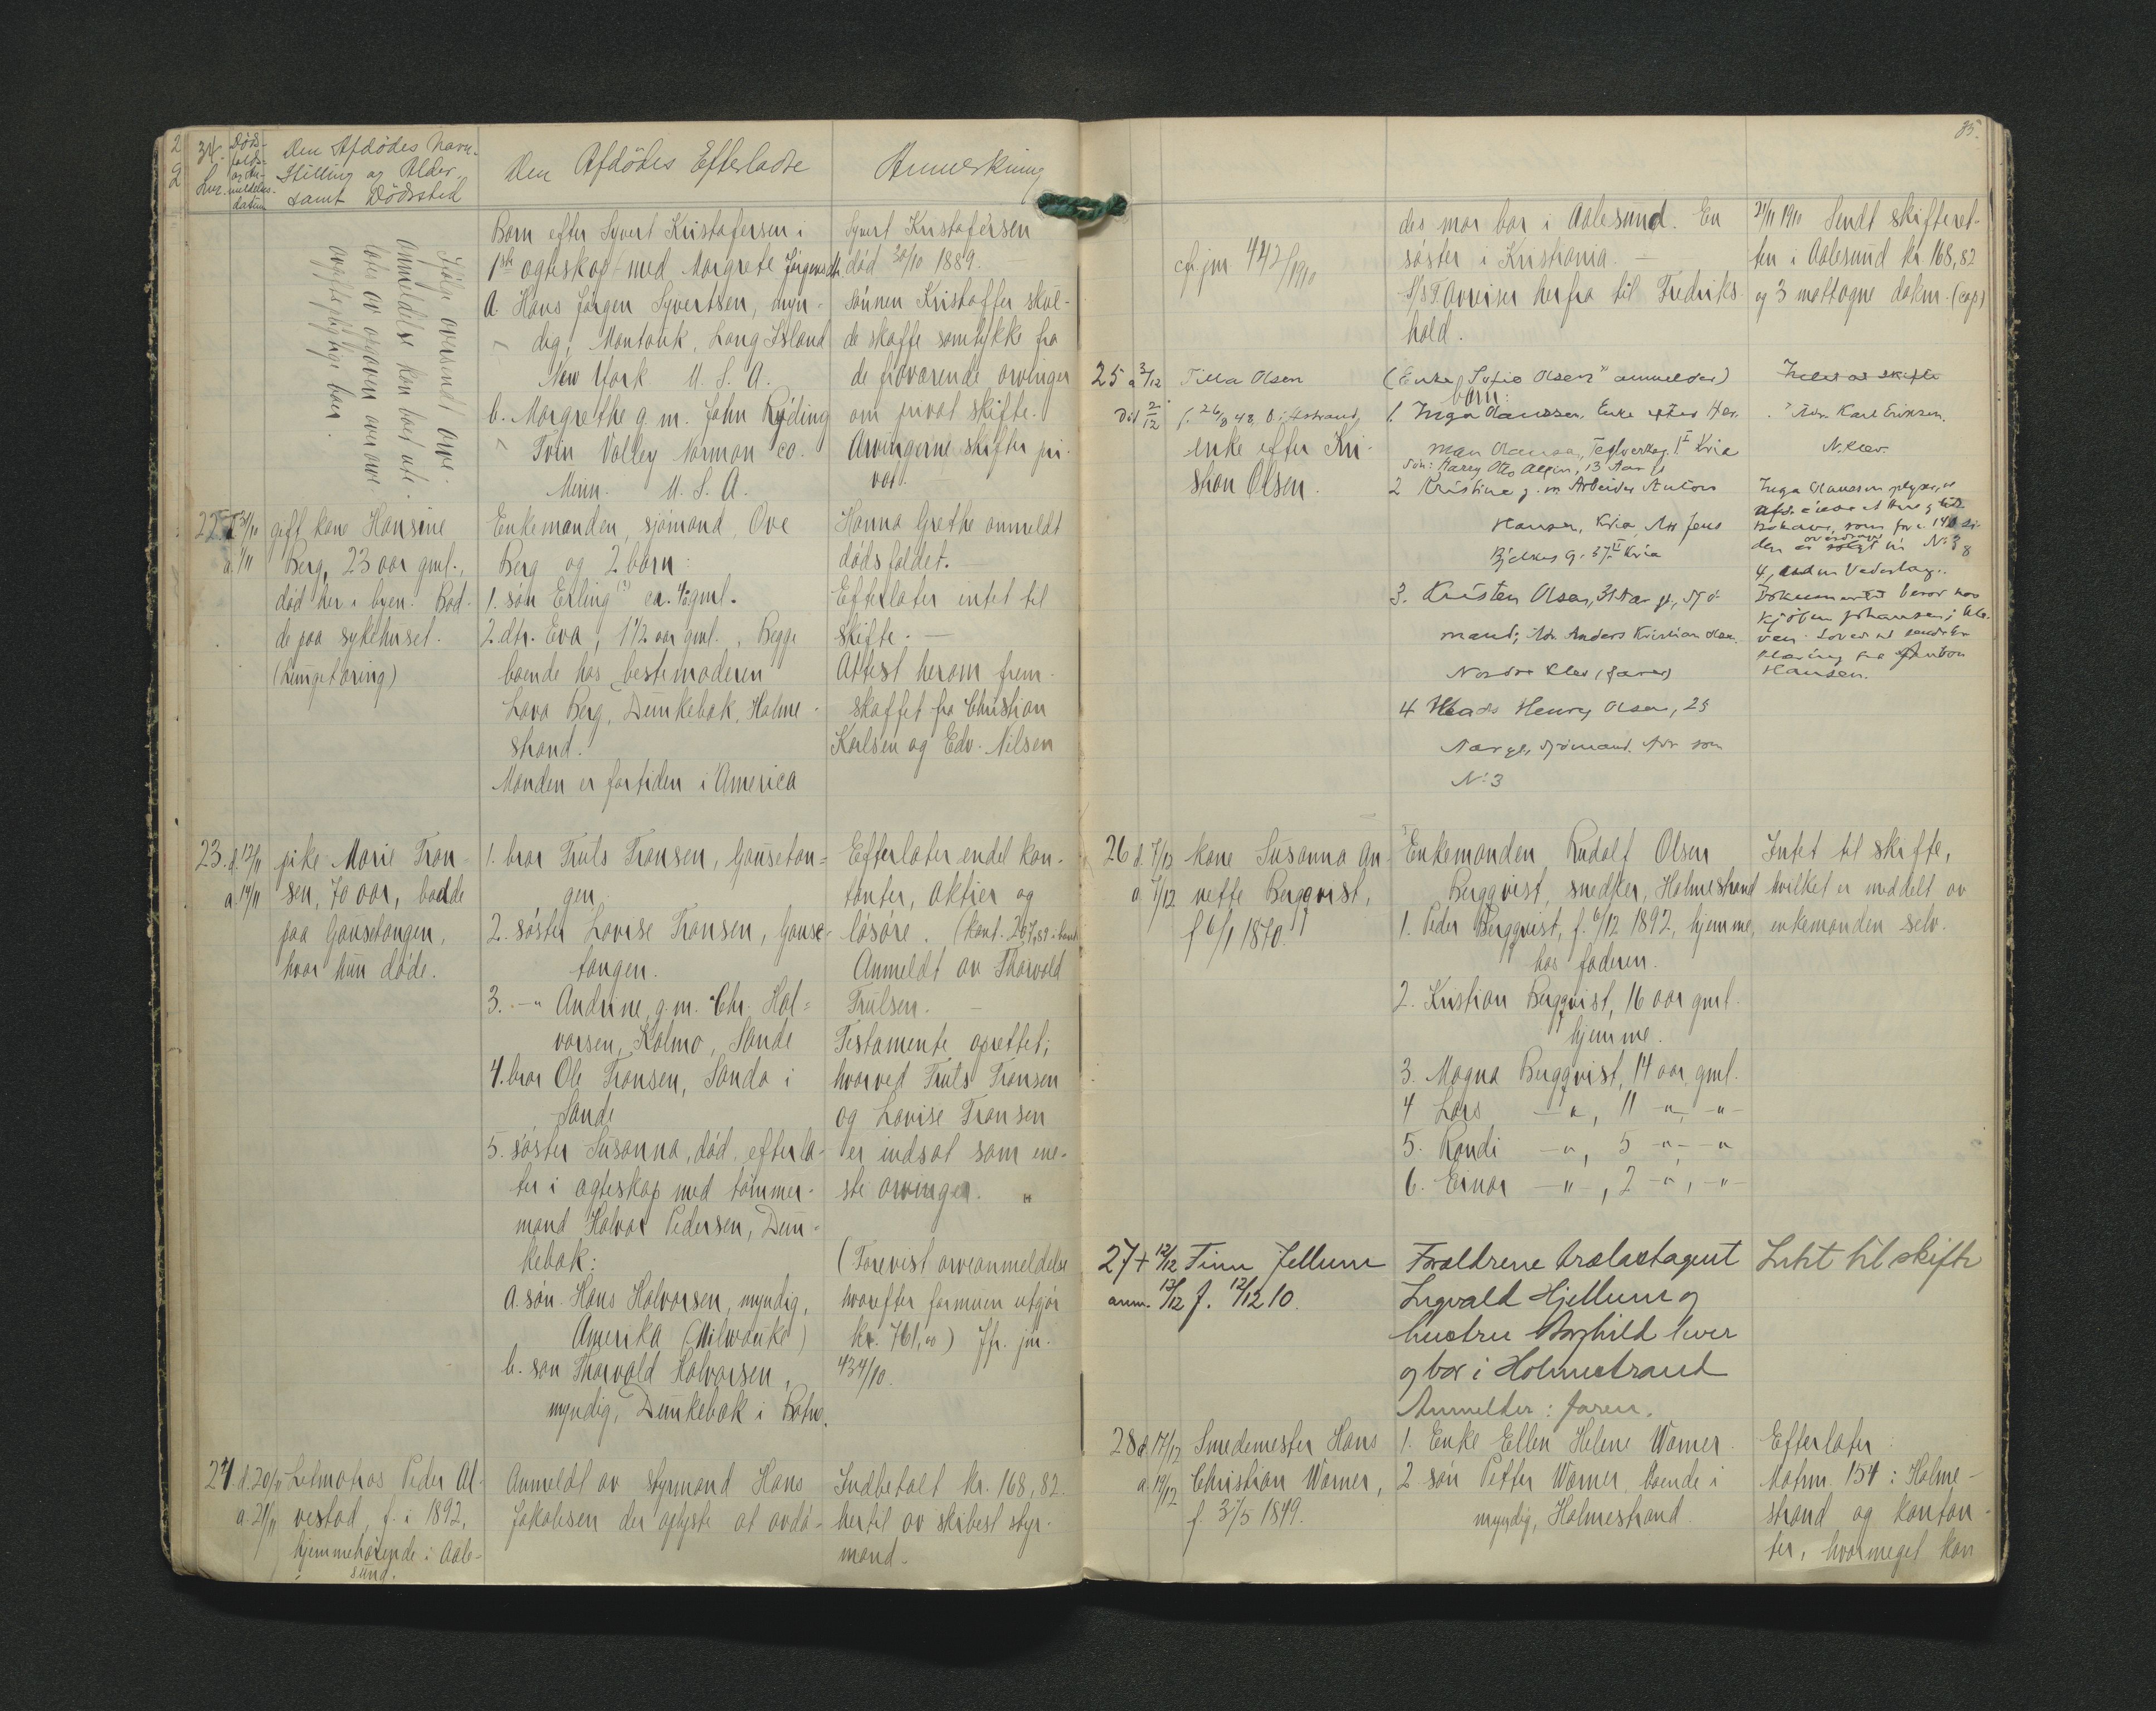 34.
Lnr.
Døds-
falds-
og an-
meldelses-
datum
Den Afdødes Navn,
Stilling og Alder,
samt Dødssted
Den Afdødes Efterladte
Anmerkning
Ifølge oversendt ove.
anmeldelse kan boet ute.
lates av opgaven over ave
avgiftspligtige boer.
Barn efter Syvert Kristofersen i
1ste ægteskap med Margrete Jørgensdtr
a. Hans Jørgen Syvertsen, myn-
dig, Montauk, Long Island
New York U. S. A.
b. Margrethe g. m. John Ryding
Tvin Valley Norman co.
Minn. U. S. A.
Syvert Kristofersen
død 30/10 1889.
Sønnen Kristoffer skul-
de skaffe samtykke fra
de fraværende arvinger
om privat skifte.
Arvingerne skifter pri-
vat.
22 d 31/10
a. 1/11
gift kone Hansine
Berg, 23 aar gml.,
død her i byen. Bod-
de paa sykehuset.
(Lungetæring)
Enkemanden, sjømand, Ove
Berg og 2 børn:
1. søn Erling ca. 4 gml.
2. dtr. Eva, 1 1/2 aar gml., Begge
boende hos bestemoderen
Lava Berg, Dunkebæk, Holme-
strand.
Manden er fortiden i America
Hanna Grethe anmeldt
dødsfaldet.
Efterlater intet til
skifte.
Attest herom frem-
skaffet fra Christian
Karlsen og Edv. Nilsen
23. d. 12/11
a 14/11
pike Marie Fran-
sen, 70 aar, bodde
paa Gausetangen,
hvor hun døde.
1. bror Truls Fransen, Gausetan-
gen.
2. søster Lovise Fransen, Gause-
tangen.
3. —"— Andrine, g. m. Chr. Hal-
vorsen, Kolmo, Sande
4. bror Ole Fransen, Sanda i
Sande
5. søster Susanna, død, efterla-
ter i ægteskap med tømmer-
mand Halvor Pedersen, Dun-
kebæk:
a. søn Hans Halvorsen, myndig,
Amerika (Milwauke)
b. søn Thorvald Halvorsen,
myndig, Dunkebæk i Botne.
Efterlater endel kon-
tanter, aktier og
løsøre. (kont. 267,59 i bank
Anmeldt av Thorvald
Trulsen.
Testamente oprettet,
hvorved Truls Fransen
og Lovise Fransen
er indsat som ene-
ste arvinger.
(Forevist arveanmeldelse
hvorefter formuen utgjør
kr. 761,00) Jfr. jnr.
434/10.
24. d. 20/11
a. 21/11
Letmatros Peder Al-
vestad, f. i 1892,
hjemmehørende i Aale-
sund.
Anmeldt av styrmand Hans
Jakobsen der oplyste at avdø-
Indbetalt kr. 168,82
hertil av skibest styr-
mand.
35.
cfr jnr 442/1910
des mor bor i Aalesund. En
søster i Kristiania. —
S/S T. avreiser herfra til Fredriks-
hald.
24/11 1910 Sendt skifteret-
ten i Aalesund kr. 168,82
og 3 mottagne dokm. (cop)
25 a 3/12
Død 2/12
Tilla Olsen
f. 26/8 43, Holmestrand,
enke efter Kri-
stian Olsen.
(Enke Sofie Olsen anmelder)
børn:
1. Inga Hanssen, Enke efter Her-
man Hansen, Teglverksg. 1 I Kria
Søn: Harry Otto Alfin, 13 Aar gl
2 Kristine g. m. Arbeider Anton
Hansen, Kria, Adr Jens
Bjelkes g. 37 II Kria
3. Kristen Olsen, 31 Aar gl, sjø-
mand, Adr. Anders Kristian Olsen
Nordre Klev (faren)
4 Mads Henry Olsen, 25
Aar gl, sjømand. Adr som
No 3
Intet at skifte
Adr. Karl Eriksen.
N. Klev.
Inga Hanssen oplyser, at
Hansen.
26 d. 7/12
a. 7/12
kone Susanna An-
nette Bergqvist,
f 6/1 1870.
Enkemanden Rudolf Olsen
Bergqvist, snedker, Holmestrand
1. Peder Bergqvist, f. 6/12 1892, hjemme,
hos faderen.
2. Kristian Bergqvist, 16 aar gml.
hjemme.
3. Magna Bergqvist, 14 aar gml.
4 Lars —"—, 11 —"— —"—
5. Randi —"—, 5 —"— —"—
6. Einar —"—, 2 —"—, —"—
Intet til skifte,
hvilket er meddelt av
enkemanden selv.
27 + 12/12
anm. 13/12
Finn Jellum
f. 12/12 10.
Forældrene trælastagent
Ingvald Hjellum og
hustru Borghild lever
og bor i Holmestrand
Anmelder: faren.
Intet til skifte
28 d. 17/12
a. 19/12
Smedemester Hans
Christian Warner,
f. 31/5 1849.
1. Enke Ellen Helene Warner.
2 søn Petter Warner, boende i
myndig, Holmestrand.
Efterlater:
Matrn. 154 i Holme-
strand og kontan-
ter, hvormeget kan